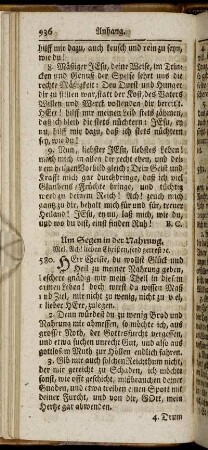 936 Anhang.
hilff mir dazu, auch keusch und rein zu seyn,
wie du!
8. Mäßiger JEsu, deine Weise, im Trincken
und Genuß der Speise lehrt uns die
rechte Mäßigkeit: Den Durst und Hunger
dir zu stillen war, statt der Kost, des Vaters
Willen und Werck vollenden dir bereit't.
HErr! hilff mir meinen Leib stets zähmen,
daß ich bleib dir stets nüchtern JEsu, ey
nu, hilff mir dazu, daß ich stets nüchtern
sey, wie du!
9. Nun, liebster JEsu, liebstes Leben!
mach mich in allem dir recht eben, und deinem
heiligen Vorbild gleich; Dein Geist und
Krafft mich gar durchdringe, daß ich viel
Glaubens-Früchte bringe, und tüchtig
werd zu deinem Reich! Ach! zeuch mich
gantz zu dir, behalt mich für und für, treuer
Heiland! JEsu, ey laß, mich, wie du,
und wo du bist, einst finden Ruh! B. C.
Um Segen in der Nahrung.
Mel. Ach! lieben Christen, seyd getrost, ec.
580. HErr Christe, du wollst Glück und
Heil zu meiner Nahrung geben,
bescher gnädig mir mein Theil in diesem
meinen Leben! doch werst du wissen Maß
und Ziel, mir nicht zu wenig, nicht zu viel,
lieber HErr, zulegen.
2. Denn würdest du zu wenig Brod und
Nahrung mir abmessen, so möcht ich aus
grosser Noth, der Gottesfurcht vergessen,
und etwa suchen unrecht Gut, das aus
gottloß'm Muth zur Höllen endlich fahren.
3. Gib mir auch solchen Reichthum nicht,
der mir gereicht zu Schaden, ich möchte
sonst, wie offt geschicht, mißbrauchen deiner
Gnaden, und etwa treiben einen Spott mit
deiner Furcht, und von dir, GOtt, mein
Hertze gar abwenden.
4. Drum